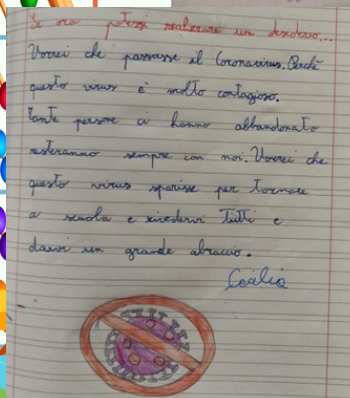 Se ora potessi realizzare un desiderio...
Vorrei che passasse il Coronavirus. Perchè
questo virus è molto contagioso.
Tante persone ci hanno abbandonato
resteranno sempre con noi. Vorrei che
questo virus sparisse per tornare
a scuola e rivedervi tutti e
darvi un grande abraccio.
Cecilia